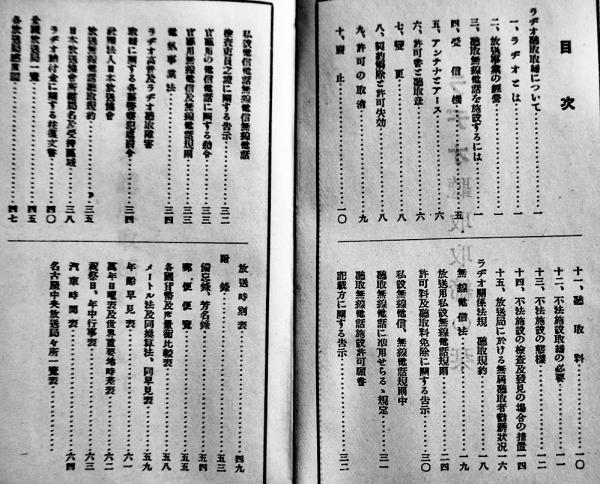 目次
ラヂオ聽取取締について………一
一、ラヂオとは………一
二、放送事業の經營………一
三、聽取無線電話を施設するには………一
四、受信機………五
五、アンテナとアース………六
六、許可書と聽取章………六
七、變更………八
八、契約解除と許可失効………八
九、許可の取消………九
十、廢止………一〇
十一、聽取料………一〇
十二、不法施設取締の必要………一一
十三、不法施設の態樣………一二
十四、不法施設の檢査及發見の場合の措置…一四
十五、放送局に於ける無屆聽取者勸誘狀況…一六
ラヂオ關係法規 聽取規約………一八
無線電信法………一九
放送用私設無線電話規則………二四
許可料及聽取料免除に關する告示………三〇
私設無線電信、無線電話規則中
聽取無線電話に准用せらるゝ規定………三一
聽取無線電話施設許可願書………三一
記載方に關する告示………三二
私設無線電信無線電話
檢査吏員之證に關する告示………三二
官廳用の電信電話に關する勅令………三三
官廳用無線電信及無線電話規則………三三
電氣事業法………三四
ラヂオ高聲及ラヂオ聽取障害
取締に關する各縣警察犯處罰令………三四
社團法人日本放送協會
放送無線電話聽取規約………三五
日本放送協會所屬局名及受持區域………三八
ラヂオ納付金に關する往復文書………四〇
全國放送局一覽………四五
各放送局感度表………四七
放送時別表………四九
附錄
備忘錄、芳名錄………五三
郵便便覽………五四
各國貨幣及度量衡比較表………五八
メートル法及同換算法、同早見表………五九
年齡早見表………六一
萬年日曜表及世界重要地時差表………六二
祝祭日、年中行事表………六三
汽車時間表………六四
名古屋中央放送局々所一覽表